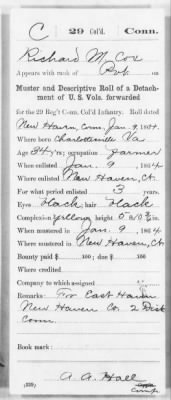 C 29 Col'd. Conn.
Richard M. Cox
Appears with rank of Pvt. on
Muster and Descriptive Roll of a Detach-
ment of U. S. Vols. forwarded
for the 29 Reg't Conn. Col'd Infantry. Roll dated
New Haven, Conn. Jan. 9, 1864.
Where born Charlottsville Va
Age 34 y'rs; occupation Farmer
When enlisted Jan. 9, 1864
Where enlisted New Haven, Ct.
For what period enlisted 3 years.
Eyes Black; hair Black
Complexion yellow; height 5 ft. 0 in.
When mustered in Jan. 9, 1864
Where mustered in New Haven, Ct.
Bounty paid $ 100; due $ 100
Where credited
Company to which assigned
Remarks: For East Haven
New Haven Co. 2 Dist
Conn.
Book mark:
A. A. Hall